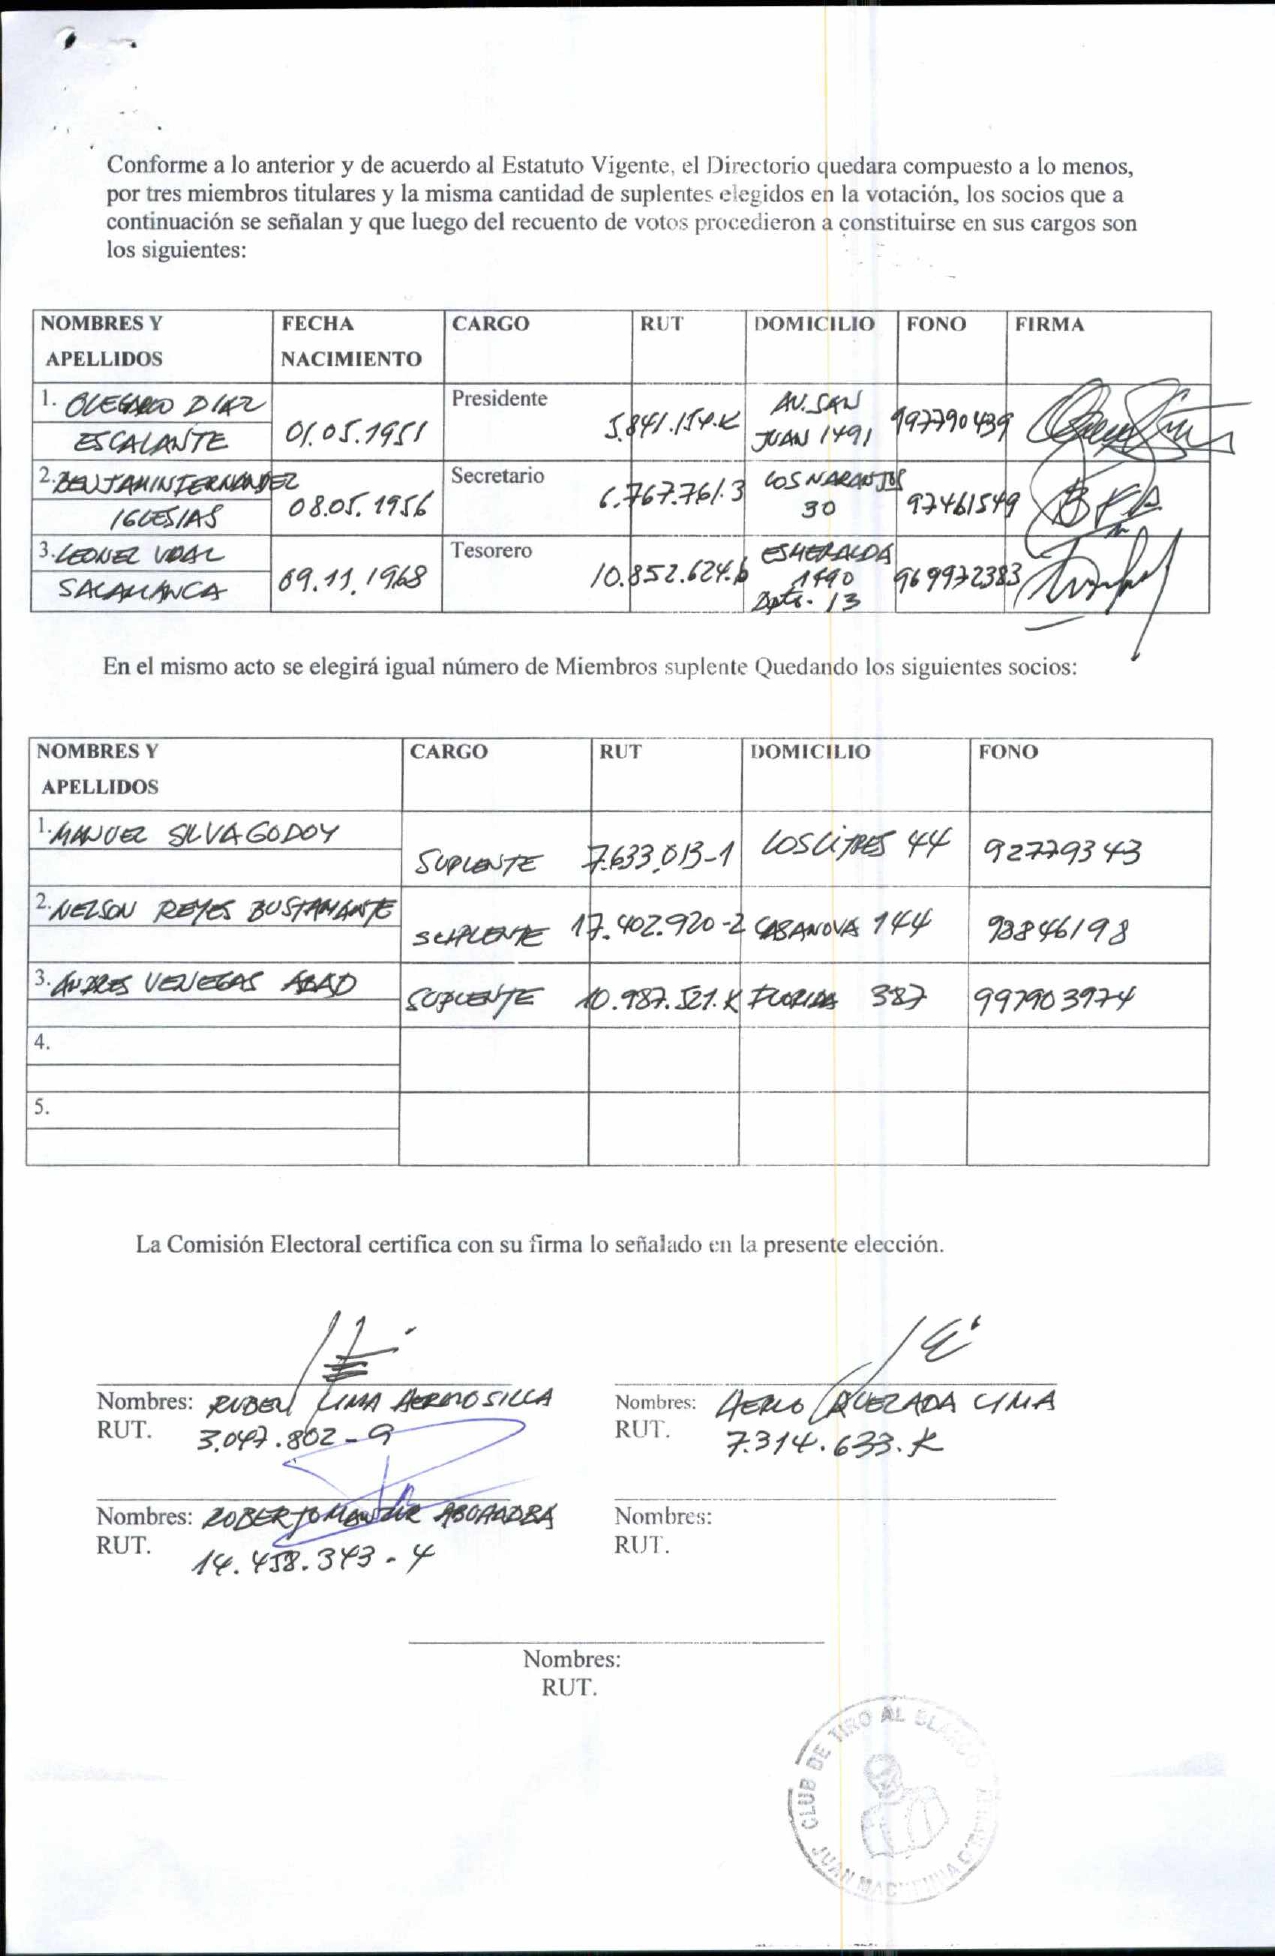 Conforme a lo anterior y de acuerdo al Estatuto Vigente, el Directorio quedara compuesto a lo menos,
por tres miembros titulares y la misma cantidad de suplentes elegidos en la votación, los socios que a
continuación se señalan y que luego del recuento de votos procedieron a constituirse en sus cargos son
los siguientes:
NOMBRES Y APELLIDOS FECHA NACIMIENTO CARGO RUT DOMICILIO FONO FIRMA
1. OLEGARIO DIAZ ESCALANTE 01.05.1951 Presidente 5.841.154.K AV. SAN JUAN 1491 997790439
2. BENJAMIN FERNANDEZ IGLESIAS 08.05.1956 Secretario 6.767.761.3 LOS NARANJOS 30 97461549
3. LEONEL VIDAL SALAMANCA 09.11.1968 Tesorero 10.852.624.6 ESMERALDA 1490 Dpto. 13 969972383
En el mismo acto se elegirá igual número de Miembros suplente Quedando los siguientes socios:
NOMBRES Y APELLIDOS CARGO RUT DOMICILIO FONO
1. MANUEL SILVA GODOY SUPLENTE 7.633.013-1 LOS LITRES 44 92779343
2. NELSON REYES BUSTAMANTE SUPLENTE 17.402.920-2 CASANOVA 144 93846198
3. ANDRES VENEGAS ABAD SUPLENTE 10.987.521.K FLORIDA 387 997903974
4.
5.
La Comisión Electoral certifica con su firma lo señalado en la presente elección.
Nombres: RUBEN LIMA HERMOSILLA
RUT. 3.047.802-9
Nombres: QUEZADA LIMA
RUT. 7.314.633.K
Nombres: ROBERTO
RUT. 14.458.343-4
Nombres:
RUT.
Nombres:
RUT.
CLUB DE TIRO AL BLANCO
JUAN MACKENNA O'REILLY